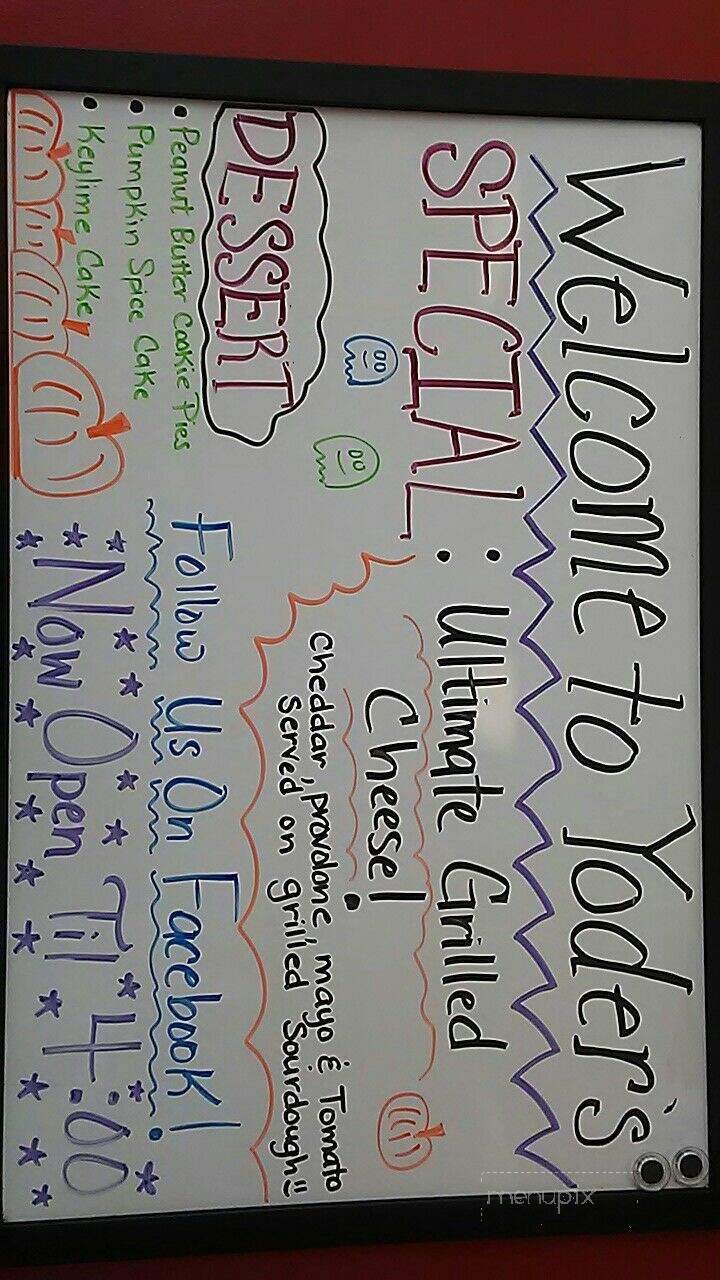 Welcome to Yoder's
SPECIAL: Ultimate Grilled
Cheese!
Cheddar, provolone, mayo & Tomato
Served on grilled Sourdough =)
DESSERT
• Peanut Butter Cookie Pies
• Pumpkin Spice Cake
• Keylime Cake
Follow Us On Facebook!
Now Open Til 4:00
menupix